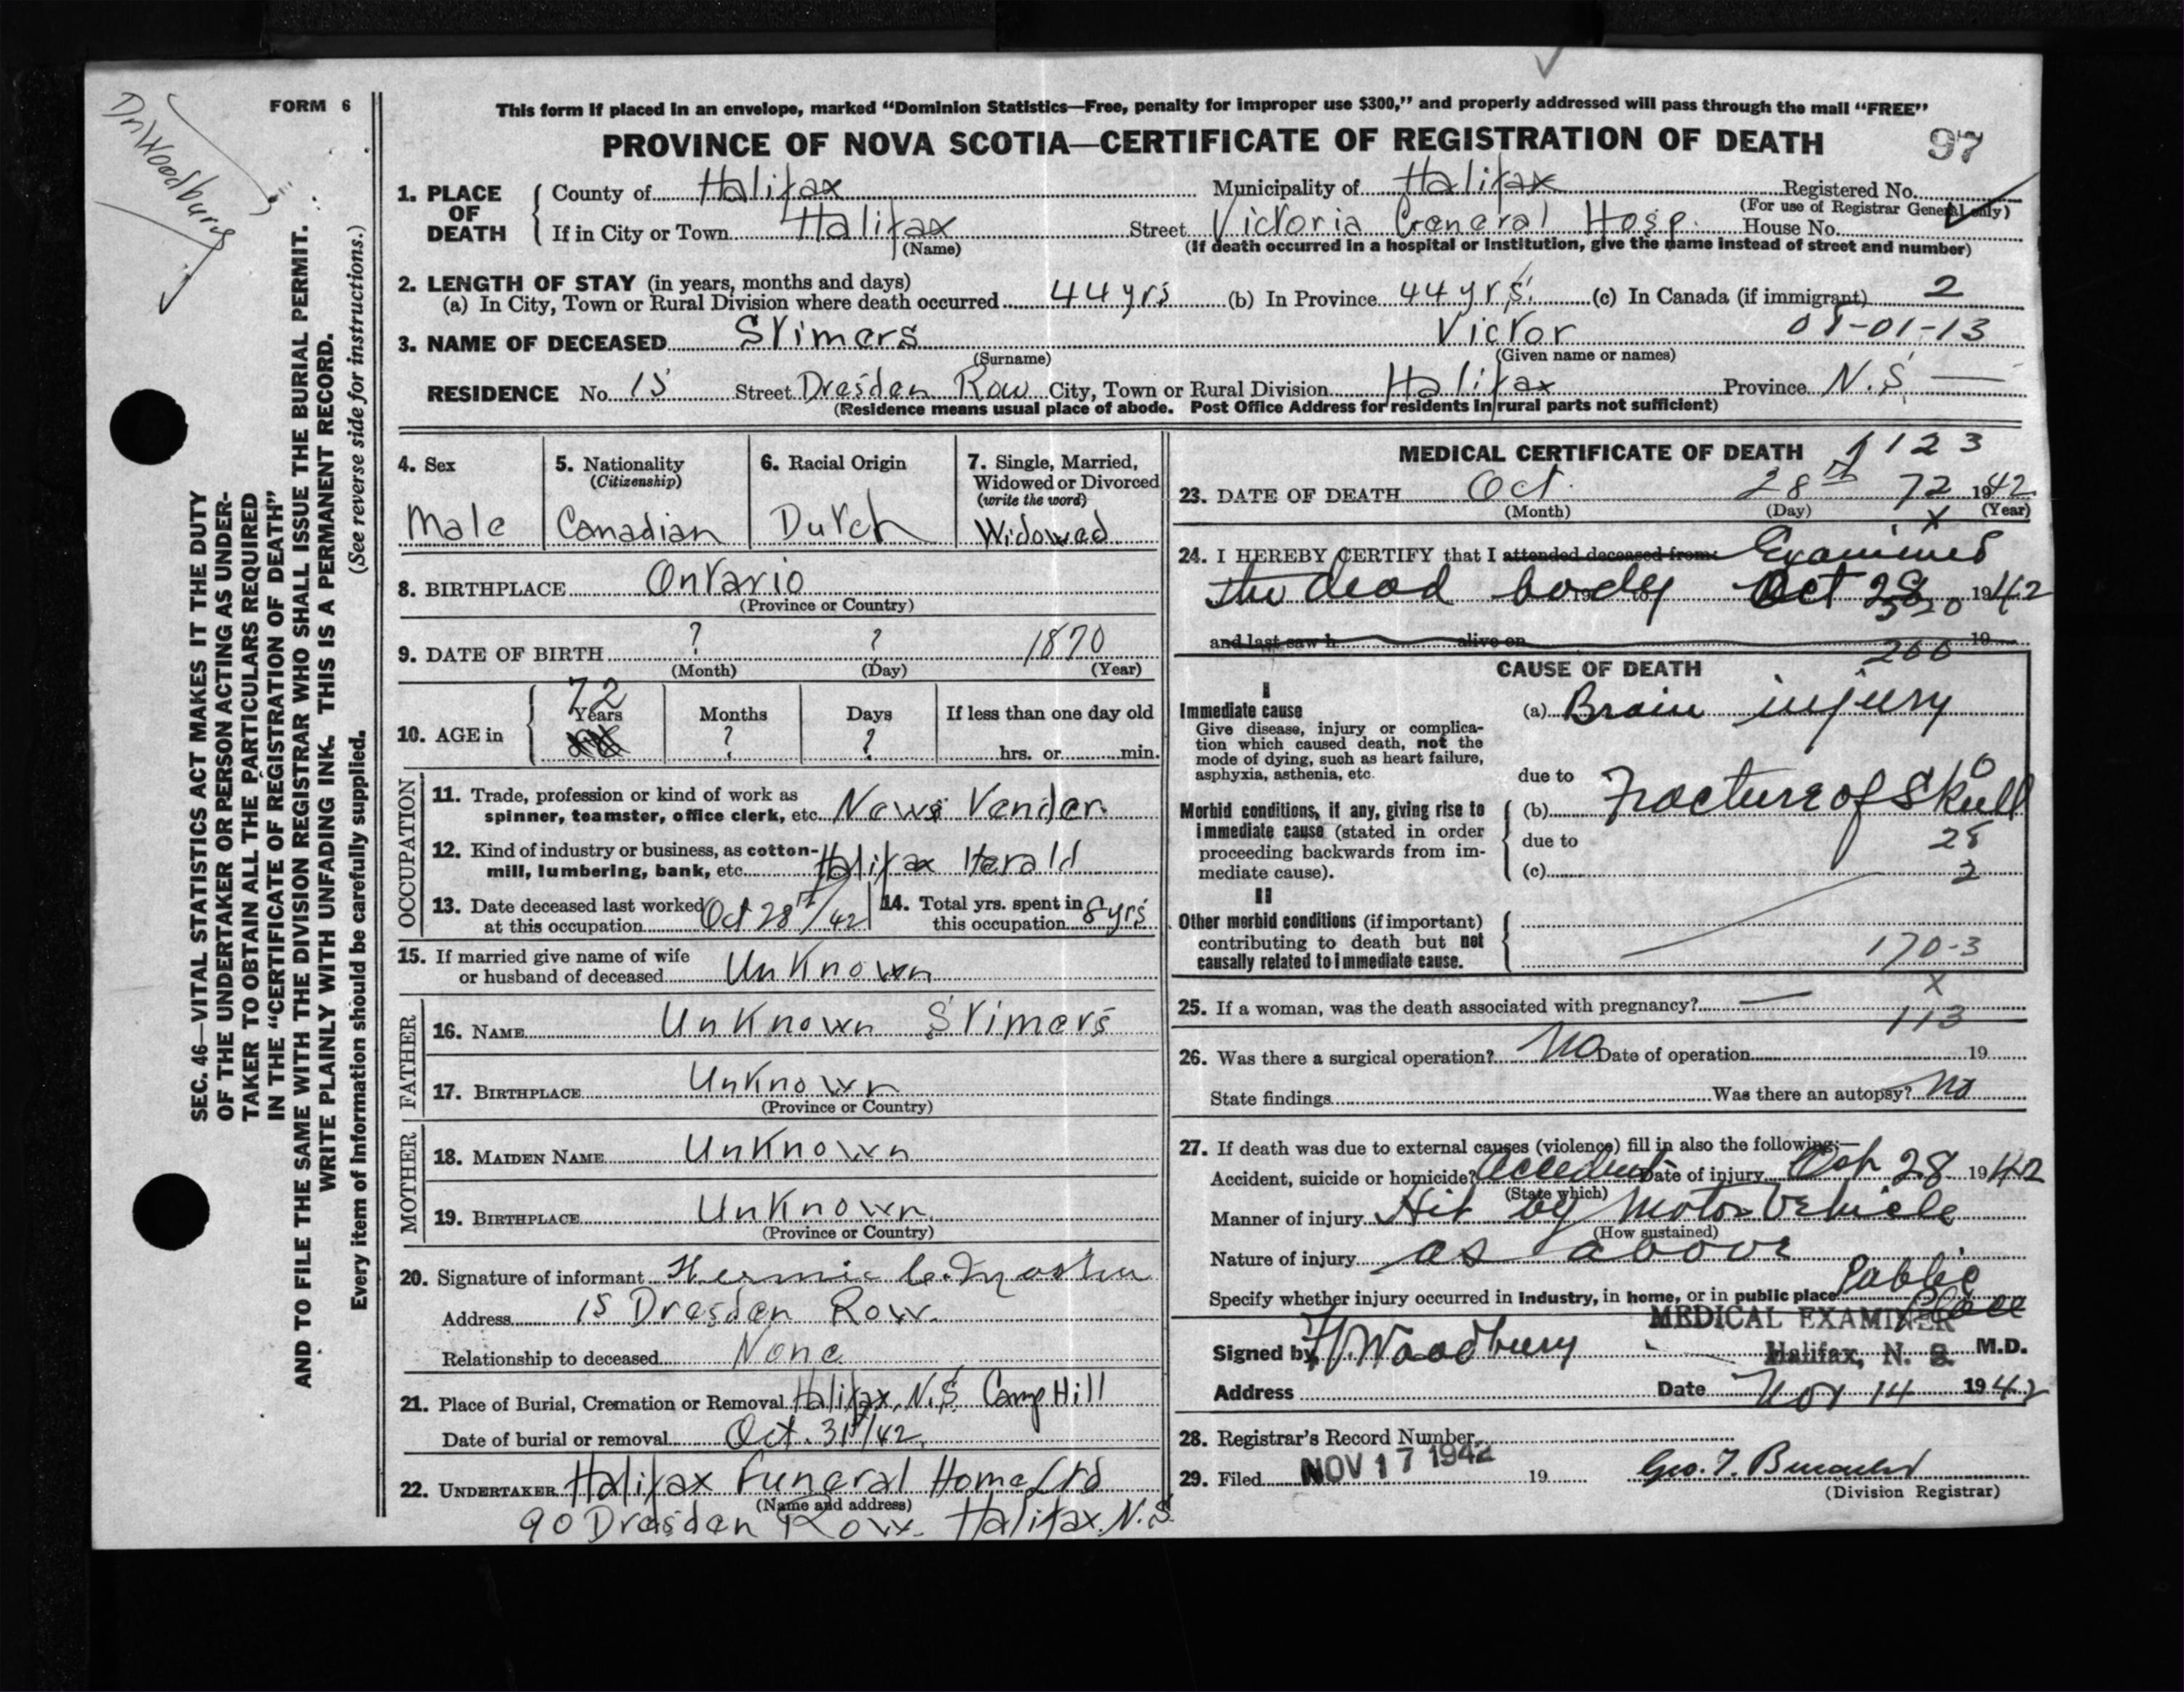 Dr Woodbury
FORM 6
SEC. 46—VITAL STATISTICS ACT MAKES IT THE DUTY
OF THE UNDERTAKER OR PERSON ACTING AS UNDER-
TAKER TO OBTAIN ALL THE PARTICULARS REQUIRED
IN THE "CERTIFICATE OF REGISTRATION OF DEATH"
AND TO FILE THE SAME WITH THE DIVISION REGISTRAR WHO SHALL ISSUE THE BURIAL PERMIT.
WRITE PLAINLY WITH UNFADING INK. THIS IS A PERMANENT RECORD.
Every item of information should be carefully supplied. (See reverse side for instructions.)
This form if placed in an envelope, marked "Dominion Statistics—Free, penalty for improper use $300," and properly addressed will pass through the mail "FREE"
PROVINCE OF NOVA SCOTIA—CERTIFICATE OF REGISTRATION OF DEATH 97
1. PLACE OF DEATH
County of Halifax Municipality of Halifax Registered No.
(For use of Registrar General only)
If in City or Town Halifax Street Victoria General Hosp. House No.
(Name) (If death occurred in a hospital or institution, give the name instead of street and number)
2. LENGTH OF STAY (in years, months and days)
(a) In City, Town or Rural Division where death occurred 44 yrs (b) In Province 44 yrs. (c) In Canada (if immigrant) 2
3. NAME OF DECEASED Stimers Victor 01-13
(Surname) (Given name or names)
RESIDENCE No. 15 Street Dresden Row City, Town or Rural Division Halifax Province N.S.
(Residence means usual place of abode. Post Office Address for residents in rural parts not sufficient)
4. Sex
Male
5. Nationality
(Citizenship)
Canadian
6. Racial Origin
Dutch
7. Single, Married,
Widowed or Divorced
(write the word)
Widowed
8. BIRTHPLACE Ontario
(Province or Country)
9. DATE OF BIRTH ? ? 1870
(Month) (Day) (Year)
10. AGE in
72
Years Months Days If less than one day old
? ? hrs. or min.
OCCUPATION
11. Trade, profession or kind of work as
spinner, teamster, office clerk, etc. News Vender.
12. Kind of industry or business, as cotton-
mill, lumbering, bank, etc. Halifax Herald
13. Date deceased last worked
at this occupation Oct 28th/42
14. Total yrs. spent in
this occupation 8 yrs
15. If married give name of wife
or husband of deceased Unknown
FATHER
16. NAME Unknown Stimers
17. BIRTHPLACE Unknown
(Province or Country)
MOTHER
18. MAIDEN NAME Unknown
19. BIRTHPLACE Unknown
(Province or Country)
20. Signature of informant
Address 15 Dresden Row.
Relationship to deceased None
21. Place of Burial, Cremation or Removal Halifax, N.S. Camp Hill
Date of burial or removal Oct. 31st/42
22. UNDERTAKER Halifax Funeral Home Ltd
(Name and address)
90 Dresden Row. Halifax. N.S.
MEDICAL CERTIFICATE OF DEATH 1123
23. DATE OF DEATH Oct. 28th 72 1942
(Month) (Day) (Year)
x
24. I HEREBY CERTIFY that I attended deceased from: Examined
the dead body Oct 28 1942
320
and last saw h alive on 19
200
CAUSE OF DEATH
I
Immediate cause
Give disease, injury or complica-
tion which caused death, not the
mode of dying, such as heart failure,
asphyxia, asthenia, etc.
(a) Brain injury
due to 0
Morbid conditions, if any, giving rise to
immediate cause (stated in order
proceeding backwards from im-
mediate cause).
(b) Fracture of Skull
due to 28
(c) 2
II
Other morbid conditions (if important)
contributing to death but not
causally related to immediate cause.
170-3
x
25. If a woman, was the death associated with pregnancy? —
113
26. Was there a surgical operation? No Date of operation 19
State findings Was there an autopsy? No
27. If death was due to external causes (violence) fill in also the following:—
Accident, suicide or homicide? Accident Date of injury Oct 28 1942
(State which)
Manner of injury Hit by Motor Vehicle
(How sustained)
Nature of injury as above
Specify whether injury occurred in industry, in home, or in public place Public
Place
MEDICAL EXAMINER
Signed by Woodbury Halifax, N. S. M.D.
Address Date Nov 14 1942
28. Registrar's Record Number
29. Filed NOV 17 1942 19
(Division Registrar)